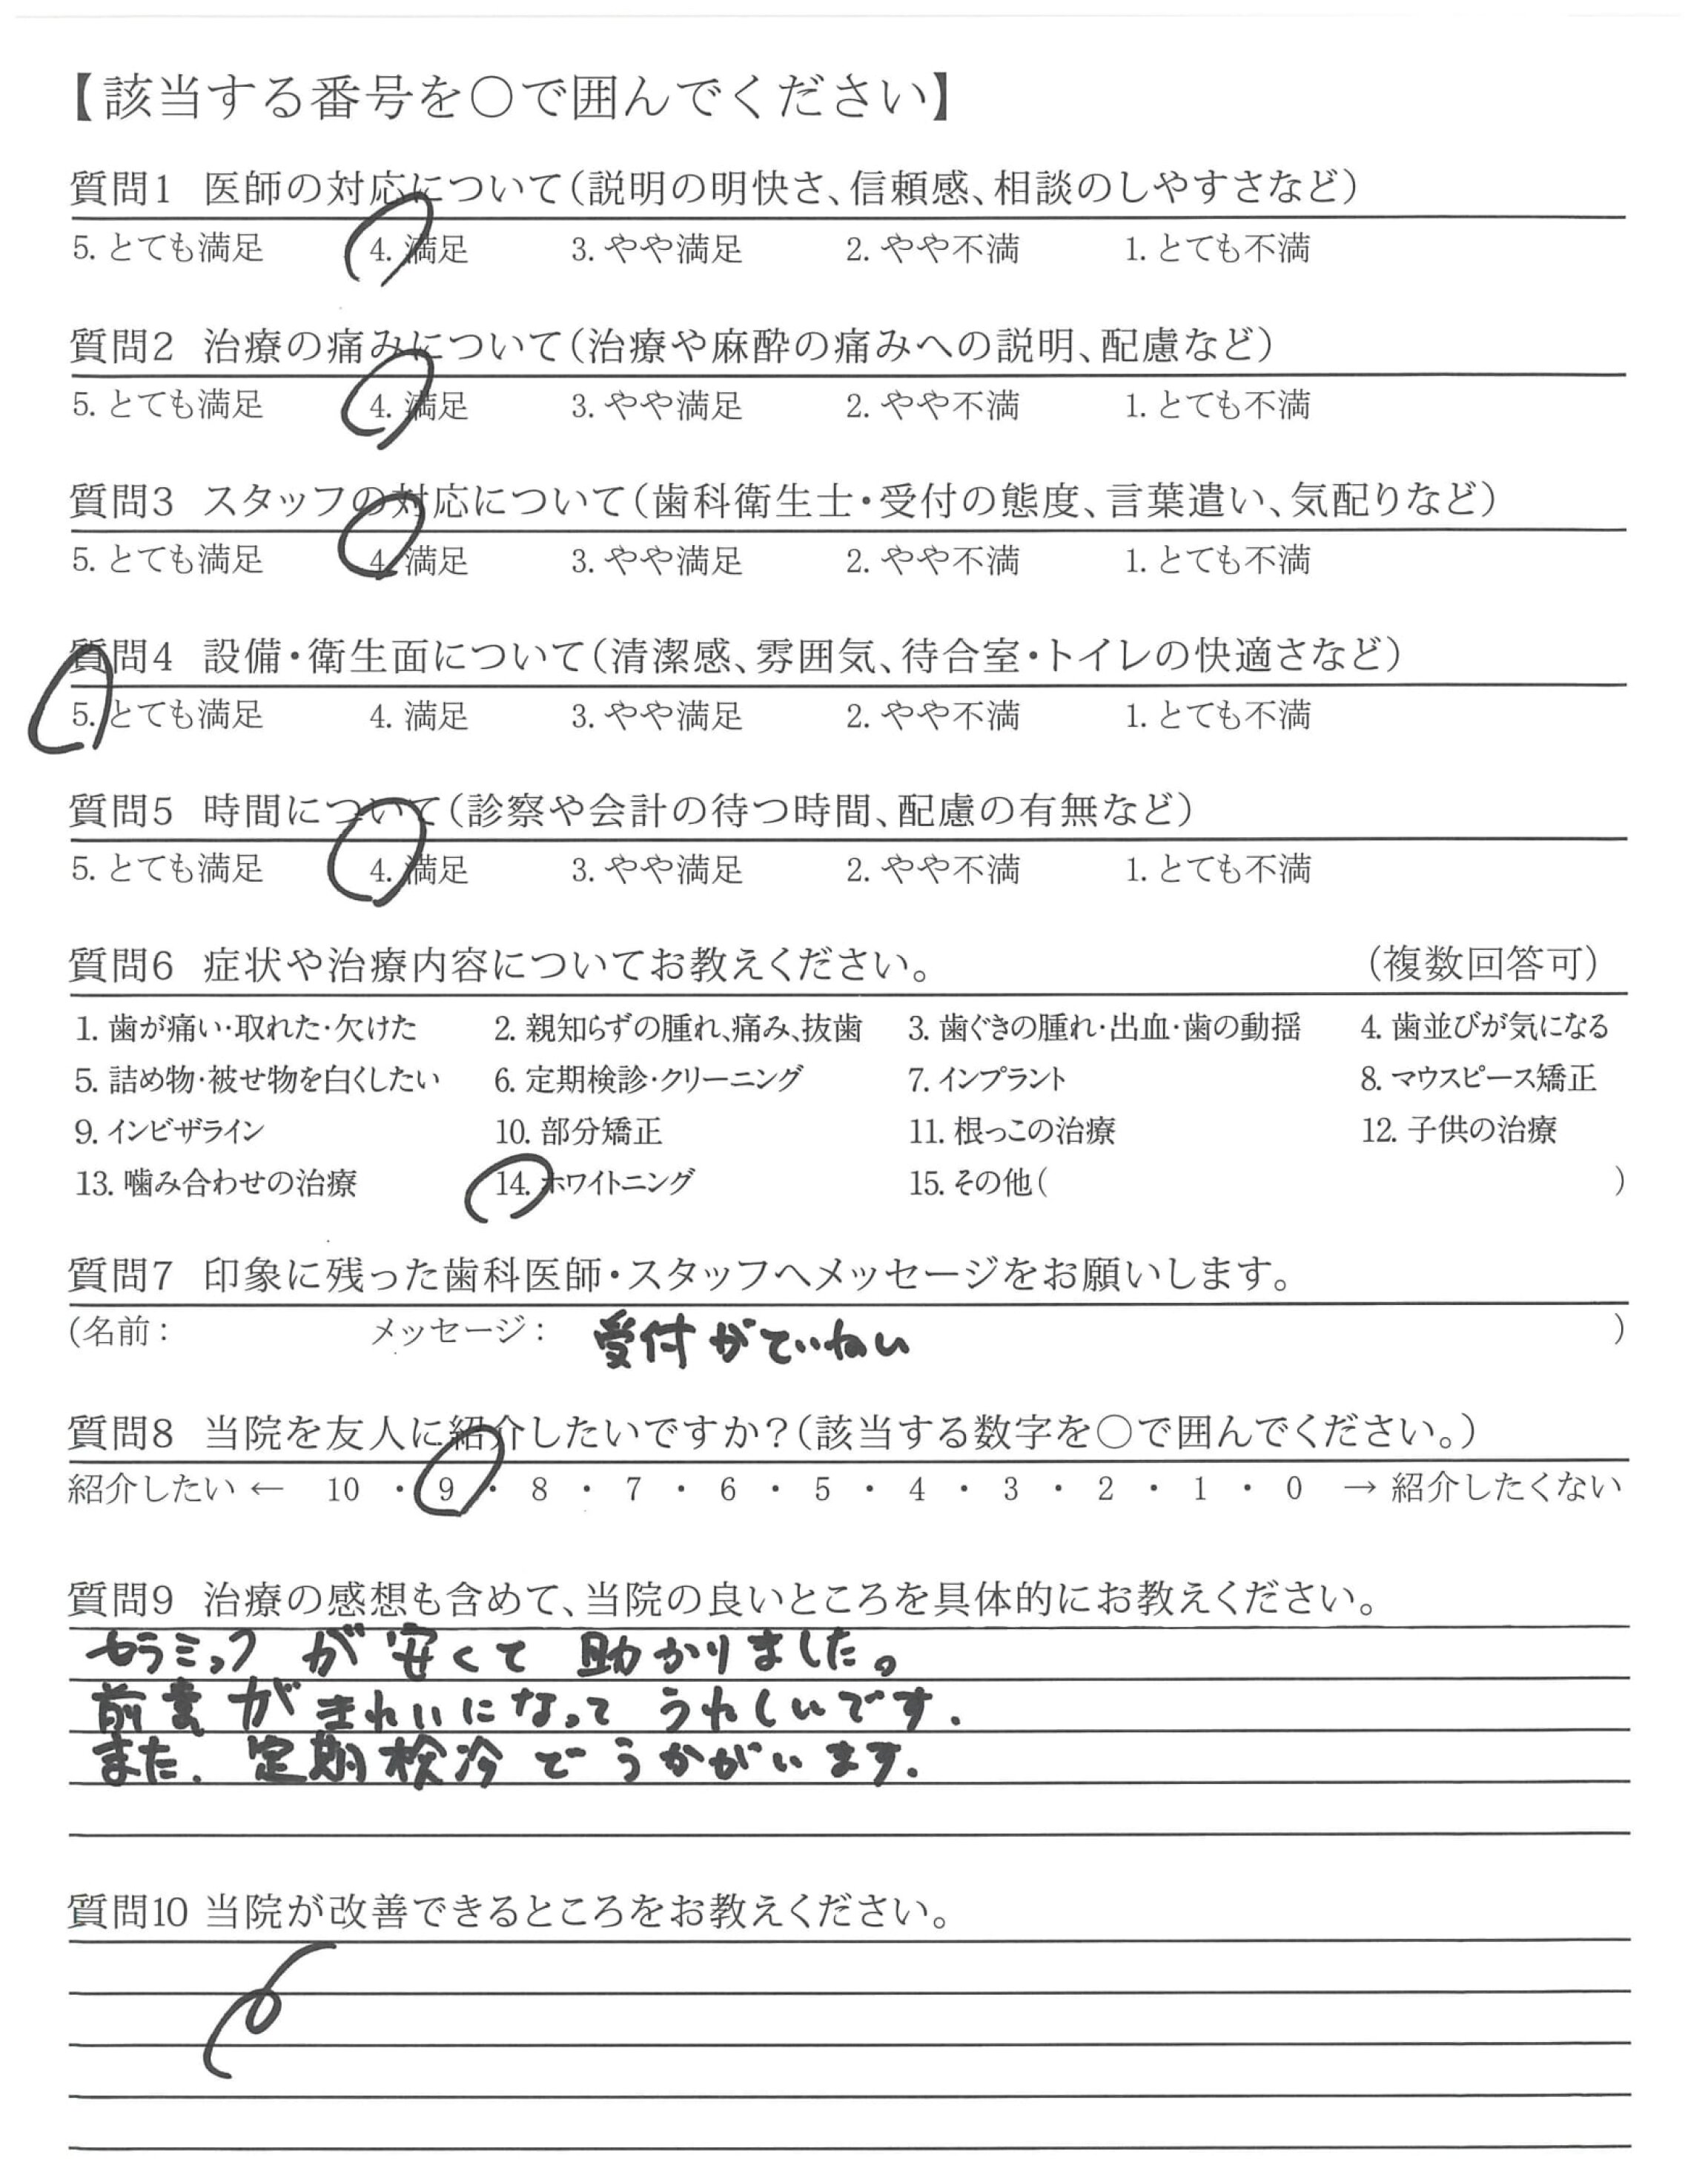 【該当する番号を○で囲んでください】
質問1 医師の対応について(説明の明快さ、信頼感、相談のしやすさなど)
5. とても満足 4. 満足 3. やや満足 2. やや不満 1. とても不満
質問2 治療の痛みについて(治療や麻酔の痛みへの説明、配慮など)
5. とても満足 4. 満足 3. やや満足 2. やや不満 1. とても不満
質問3 スタッフの対応について(歯科衛生士・受付の態度、言葉遣い、気配りなど)
5. とても満足 4. 満足 3. やや満足 2. やや不満 1. とても不満
質問4 設備・衛生面について(清潔感、雰囲気、待合室・トイレの快適さなど)
5. とても満足 4. 満足 3. やや満足 2. やや不満 1. とても不満
質問5 時間について(診察や会計の待つ時間、配慮の有無など)
5. とても満足 4. 満足 3. やや満足 2. やや不満 1. とても不満
質問6 症状や治療内容についてお教えください。 (複数回答可)
1. 歯が痛い・取れた・欠けた 2. 親知らずの腫れ、痛み、抜歯 3. 歯ぐきの腫れ・出血・歯の動揺 4. 歯並びが気になる
5. 詰め物・被せ物を白くしたい 6. 定期検診・クリーニング 7. インプラント 8. マウスピース矯正
9. インビザライン 10. 部分矯正 11. 根っこの治療 12. 子供の治療
13. 噛み合わせの治療 14. ホワイトニング 15. その他( )
質問7 印象に残った歯科医師・スタッフへメッセージをお願いします。
(名前: メッセージ: 受付がていねい )
質問8 当院を友人に紹介したいですか?(該当する数字を○で囲んでください。)
紹介したい ← 10 ・ 9 ・ 8 ・ 7 ・ 6 ・ 5 ・ 4 ・ 3 ・ 2 ・ 1 ・ 0 → 紹介したくない
質問9 治療の感想も含めて、当院の良いところを具体的にお教えください。
セラミックが安くて助かりました。
前歯がきれいになってうれしいです.
また. 定期検診でうかがいます.
質問10 当院が改善できるところをお教えください。